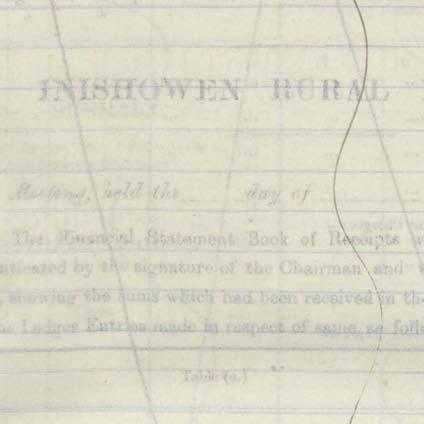 INISHOWEN RURAL
Meeting, held the day of
The Financial Statement Book of Receipts
nticated by the signature of the Chairman and
, showing the sums which had been received in th
he Ledger Entries made in respect of same, as foll
Table (a.)